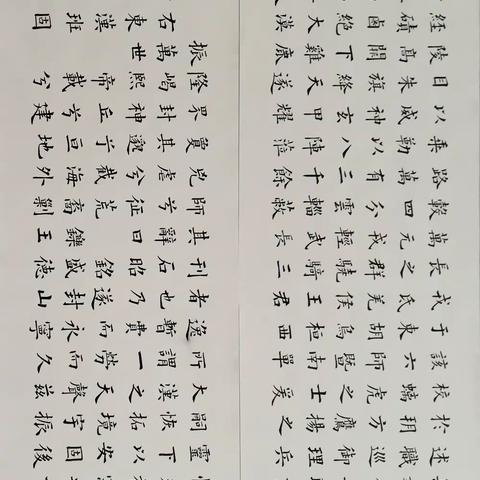 述職巡御理兵
於朔方鷹揚之
校螭虎之士爰
該六師暨南單
于東胡烏桓西
戎氐羌侯王君
長之群驍騎三
萬元戎輕武長
轂四分雲輜蔽
路萬有三千餘
乘勒以八陣蒞
以威神玄甲耀
目朱旗絳天遂
陵高闕下雞鹿
經磧鹵絕大漠
靈下以安固後
嗣恢拓境宇振
大漢之天聲茲
所謂一勞而久
逸暫費而永寧
者也乃遂封山
刊石昭銘盛德
其辭曰 鑠王
師兮征荒裔剿
兇虐兮截海外
夐其邈兮亙地
界封神丘兮建
隆嵑熙帝載兮
振萬世
右東漢班固